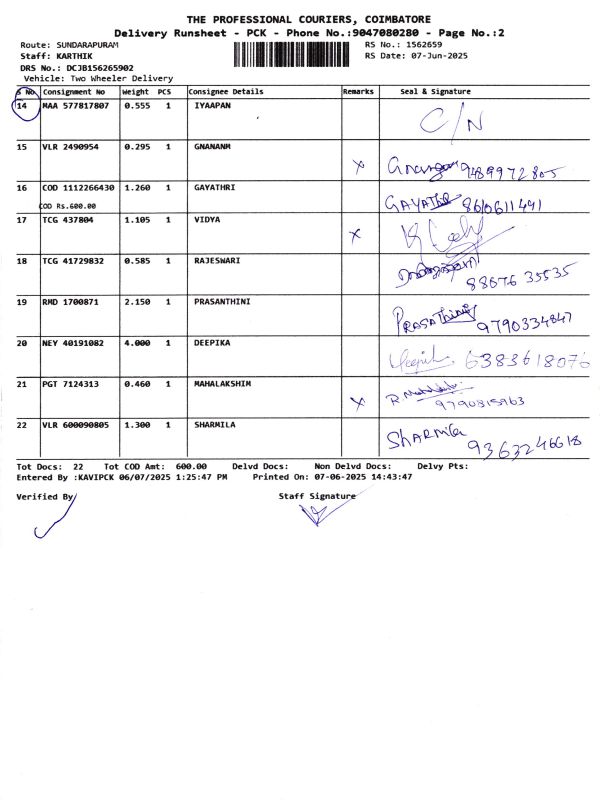 THE PROFESSIONAL COURIERS, COIMBATORE
Delivery Runsheet - PCK - Phone No.:9047080280 - Page No.:2
Route: SUNDARAPURAM RS No.: 1562659
Staff: KARTHIK RS Date: 07-Jun-2025
DRS No.: DCJB156265902
Vehicle: Two Wheeler Delivery
S No. Consignment No Weight PCS Consignee Details Remarks Seal & Signature
14 MAA 577817807 0.555 1 IYAAPAN C/N
15 VLR 2490954 0.295 1 GNANANM x 9489972805
16 COD 1112266430 1.260 1 GAYATHRI GAYATHRI 8610611491
COD Rs.600.00
17 TCG 437804 1.105 1 VIDYA x
18 TCG 41729832 0.585 1 RAJESWARI 88676 35535
19 RMD 1700871 2.150 1 PRASANTHINI 9790334847
20 NEY 40191082 4.000 1 DEEPIKA 6383618076
21 PGT 7124313 0.460 1 MAHALAKSHIM x 9790815963
22 VLR 600090805 1.300 1 SHARMILA SHARMila 9363246618
Tot Docs: 22 Tot COD Amt: 600.00 Delvd Docs: Non Delvd Docs: Delvy Pts:
Entered By :KAVIPCK 06/07/2025 1:25:47 PM Printed On: 07-06-2025 14:43:47
Verified By Staff Signature